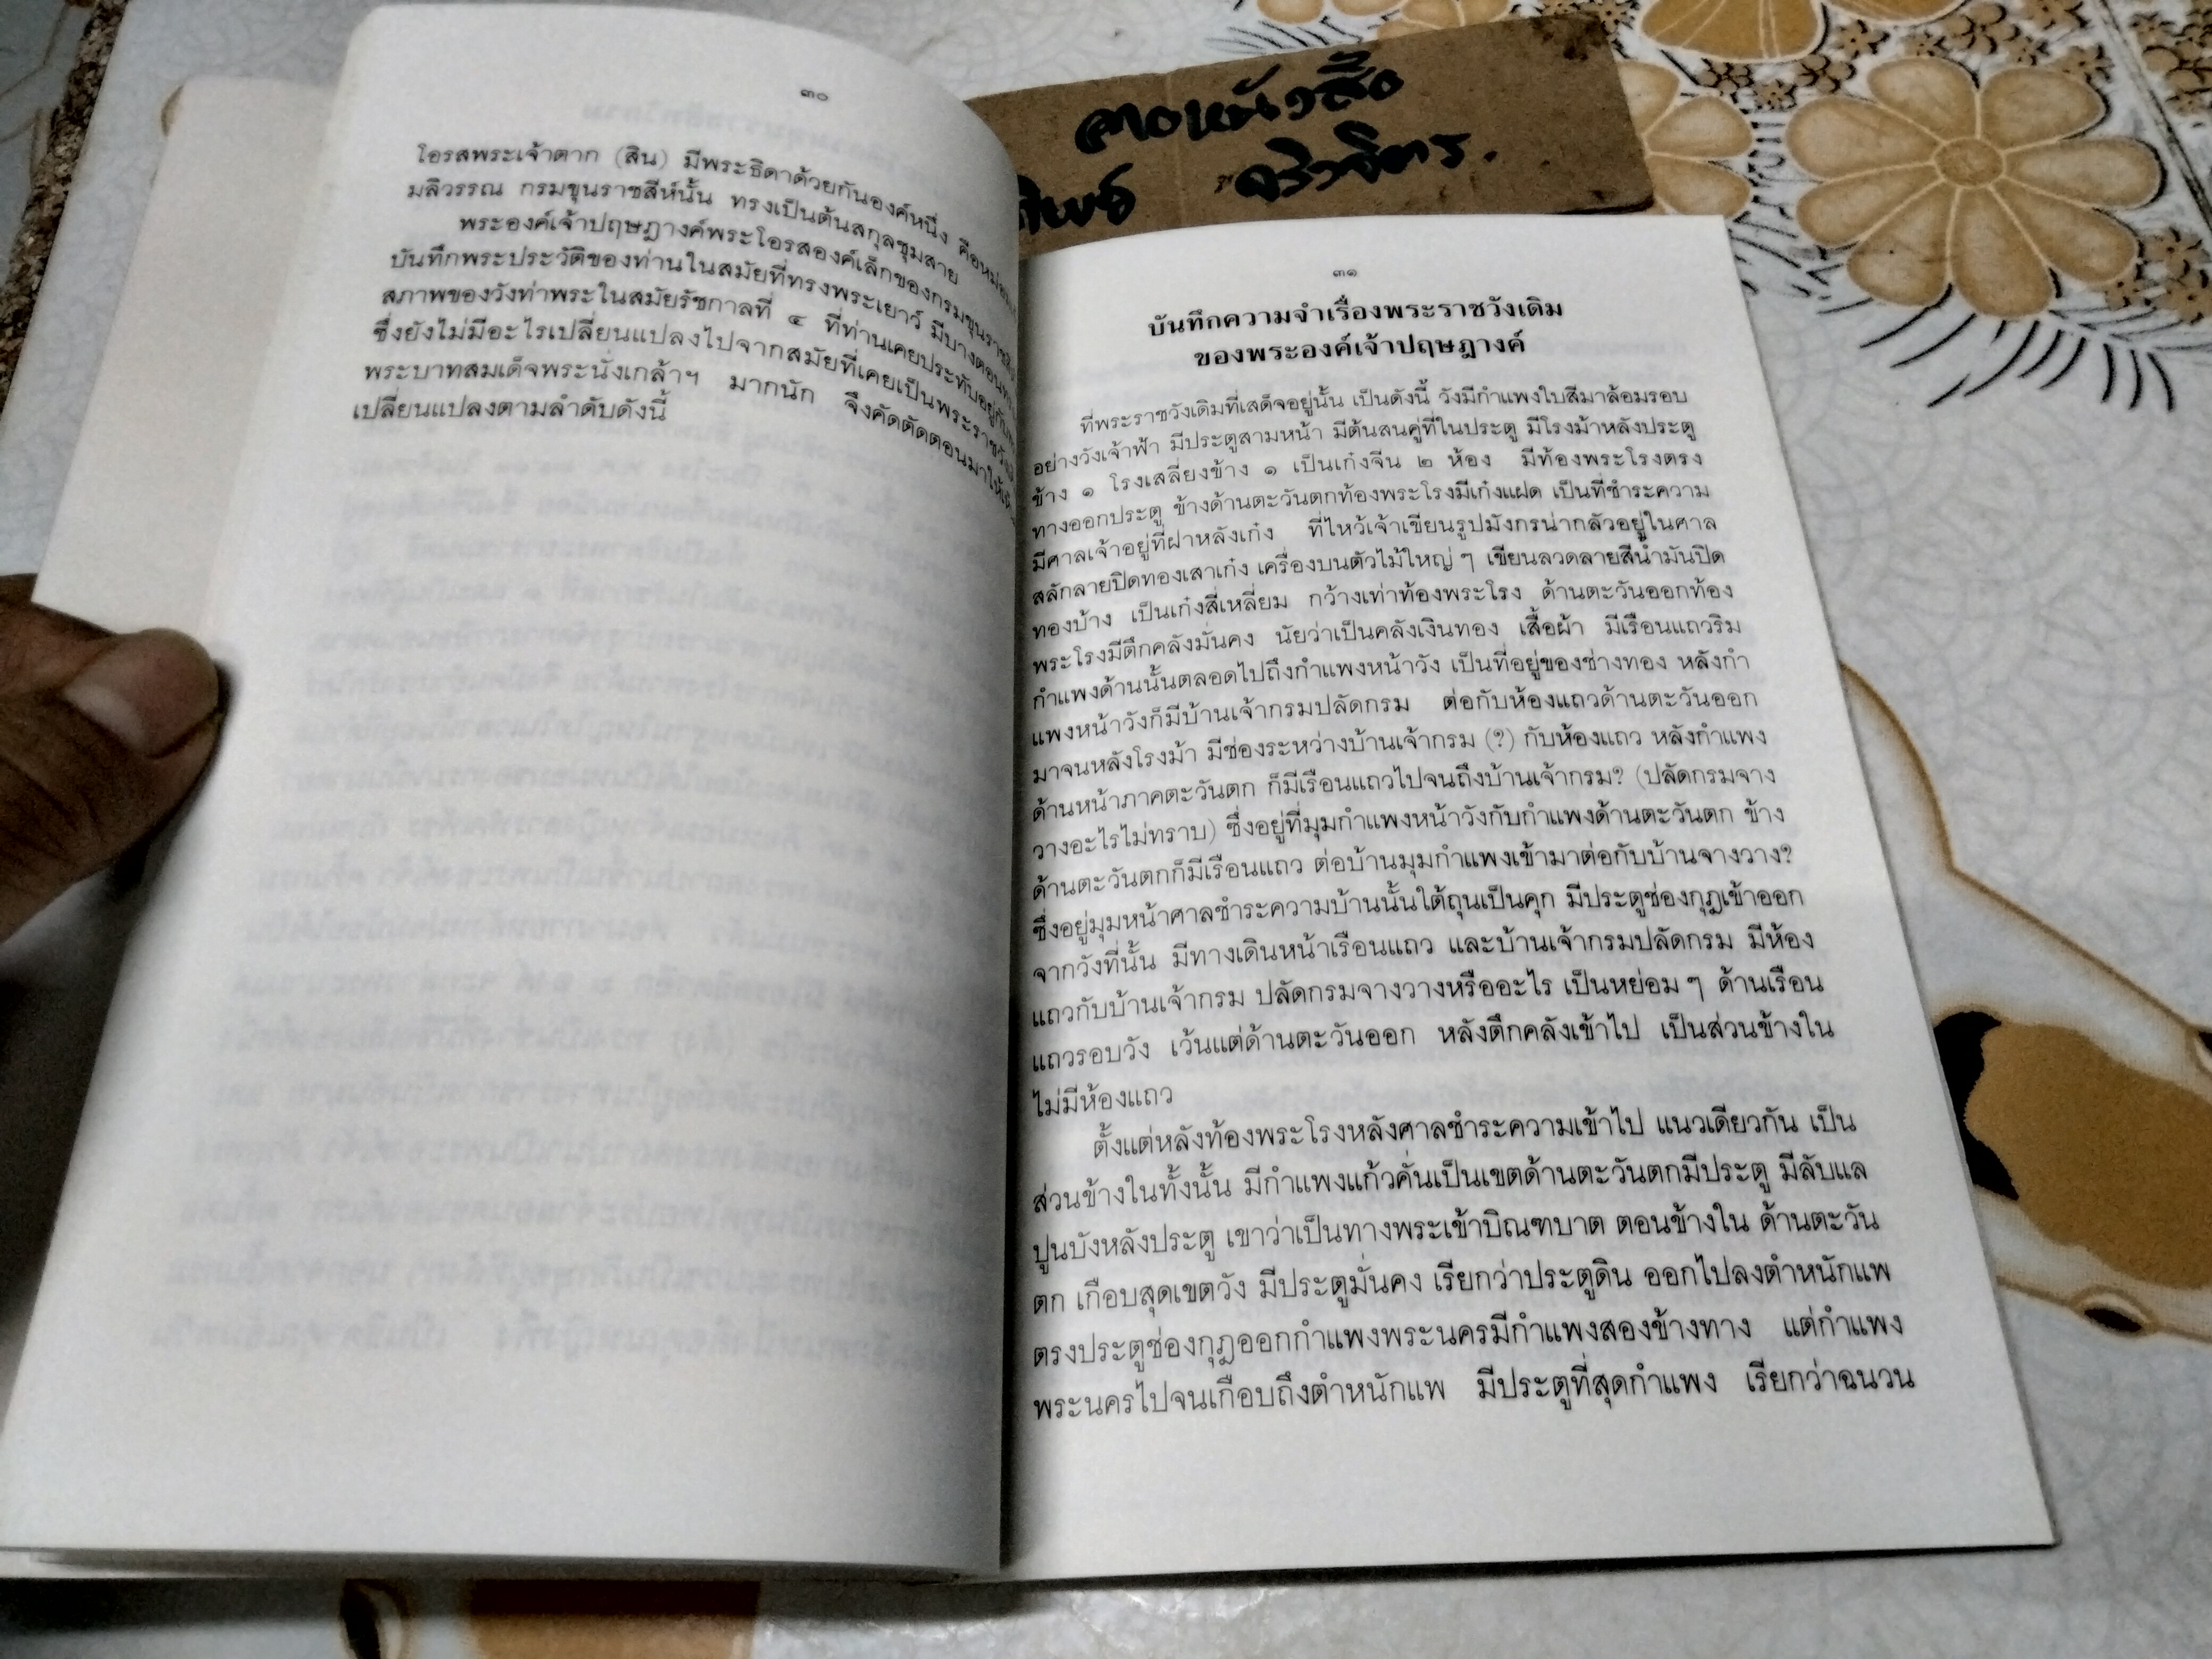 ๓๐
โอรสพระเจ้าตาก (สิน) มีพระธิดาด้วยกันองค์หนึ่ง คือหม่อม
มลิวรรณ กรมขุนราชสีห์นั้น ทรงเป็นต้นสกุลชุมสาย
พระองค์เจ้าปฤษฎางค์พระโอรสองค์เล็กของกรมขุนราชสีห์
บันทึกพระประวัติของท่านในสมัยที่ทรงพระเยาว์ มีบางตอน
สภาพของวังท่าพระในสมัยรัชกาลที่ ๔ ที่ท่านเคยประทับอยู่กับ
ซึ่งยังไม่มีอะไรเปลี่ยนแปลงไปจากสมัยที่เคยเป็นพระราชวัง
พระบาทสมเด็จพระนั่งเกล้าฯ มากนัก จึงคัดตัดตอนมาให้
เปลี่ยนแปลงตามลำดับดังนี้
สายหนังสือ
จริวจิตร.
๓๑
บันทึกความจำเรื่องพระราชวังเดิม
ของพระองค์เจ้าปฤษฎางค์
ที่พระราชวังเดิมที่เสด็จอยู่นั้น เป็นดังนี้ วังมีกำแพงใบสีมาล้อมรอบ
อย่างวังเจ้าฟ้า มีประตูสามหน้า มีต้นสนคู่ที่ในประตู มีโรงม้าหลังประตู
ข้าง ๑ โรงเสลี่ยงข้าง ๑ เป็นเก๋งจีน ๒ ห้อง มีท้องพระโรงตรง
ทางออกประตู ข้างด้านตะวันตกท้องพระโรงมีเก๋งแฝด เป็นที่ชำระความ
มีศาลเจ้าอยู่ที่ฝาหลังเก๋ง ที่ไหว้เจ้าเขียนรูปมังกรน่ากลัวอยู่ในศาล
สลักลายปิดทองเสาเก๋ง เครื่องบนตัวไม้ใหญ่ ๆ เขียนลวดลายสีน้ำมันปิด
ทองบ้าง เป็นเก๋งสี่เหลี่ยม กว้างเท่าท้องพระโรง ด้านตะวันออกท้อง
พระโรงมีตึกคลังมั่นคง นัยว่าเป็นคลังเงินทอง เสื้อผ้า มีเรือนแถวริม
กำแพงด้านนั้นตลอดไปถึงกำแพงหน้าวัง เป็นที่อยู่ของช่างทอง หลังกำ
แพงหน้าวังก็มีบ้านเจ้ากรมปลัดกรม ต่อกับห้องแถวด้านตะวันออก
มาจนหลังโรงม้า มีช่องระหว่างบ้านเจ้ากรม (?) กับห้องแถว หลังกำแพง
ด้านหน้าภาคตะวันตก ก็มีเรือนแถวไปจนถึงบ้านเจ้ากรม? (ปลัดกรมจาง
วางอะไรไม่ทราบ) ซึ่งอยู่ที่มุมกำแพงหน้าวังกับกำแพงด้านตะวันตก ข้าง
ด้านตะวันตกก็มีเรือนแถว ต่อบ้านมุมกำแพงเข้ามาต่อกับบ้านจางวาง?
ซึ่งอยู่มุมหน้าศาลชำระความบ้านนั้นใต้ถุนเป็นคุก มีประตูช่องกุฎเข้าออก
จากวังที่นั้น มีทางเดินหน้าเรือนแถว และบ้านเจ้ากรมปลัดกรม มีห้อง
แถวกับบ้านเจ้ากรม ปลัดกรมจางวางหรืออะไร เป็นหย่อม ๆ ด้านเรือน
แถวรอบวัง เว้นแต่ด้านตะวันออก หลังตึกคลังเข้าไป เป็นส่วนข้างใน
ไม่มีห้องแถว
ตั้งแต่หลังท้องพระโรงหลังศาลชำระความเข้าไป แนวเดียวกัน เป็น
ส่วนข้างในทั้งนั้น มีกำแพงแก้วคั่นเป็นเขตด้านตะวันตกมีประตู มีลับแล
ปูนบังหลังประตู เขาว่าเป็นทางพระเข้าบิณฑบาต ตอนข้างใน ด้านตะวัน
ตก เกือบสุดเขตวัง มีประตูมั่นคง เรียกว่าประตูดิน ออกไปลงตำหนักแพ
ตรงประตูช่องกุฎออกกำแพงพระนครมีกำแพงสองข้างทาง แต่กำแพง
พระนครไปจนเกือบถึงตำหนักแพ มีประตูที่สุดกำแพง เรียกว่าฉนวน